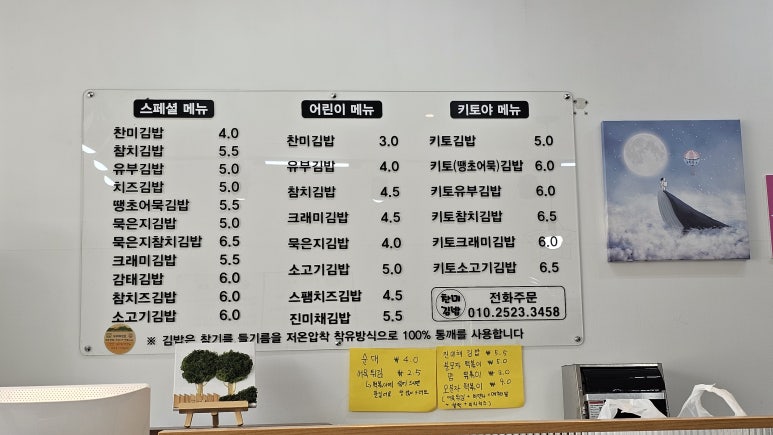 스페셜 메뉴
찬미김밥 4.0
참치김밥 5.5
유부김밥 5.0
치즈김밥 5.0
땡초어묵김밥 5.5
묵은지김밥 5.0
묵은지참치김밥 6.5
크래미김밥 5.5
감태김밥 6.0
참치즈김밥 6.0
소고기김밥 6.0
어린이 메뉴
찬미김밥 3.0
유부김밥 4.0
참치김밥 4.5
크래미김밥 4.5
묵은지김밥 4.0
소고기김밥 5.0
스팸치즈김밥 4.5
진미채김밥 5.5
키토야 메뉴
키토김밥 5.0
키토(땡초어묵)김밥 6.0
키토유부김밥 6.0
키토참치김밥 6.5
키토크래미김밥 6.0
키토소고기김밥 6.5
찬미김밥
전화주문
010.2523.3458
※ 김밥은 참기름 들기름을 저온압착 착유방식으로 100% 통깨를 사용합니다
순대 ₩4.0
₩2.5
진미채 김밥 ₩5.5
떡볶이 ₩5.0
₩3.0
떡볶이 ₩9.0